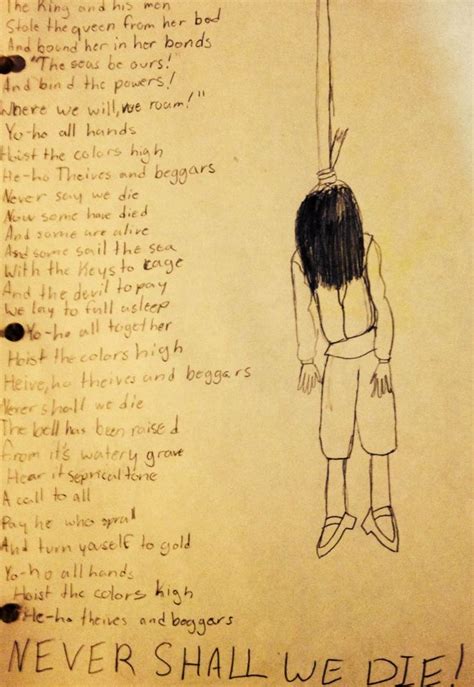 The King and his men
Stole the queen from her bed
And bound her in her bonds
"The seas be ours!
And bind the powers!
Where we will, we roam!"
Yo-ho all hands
Hoist the colors high
He-ho Theives and beggars
Never say we die
Now some have died
And some are alive
And some sail the sea
With the Keys to cage
And the devil to pay
We lay to fall asleep
Yo-ho all together
Hoist the colors high
Heive, ho theives and beggars
Never shall we die
The bell has been raised
From it's watery grave
Hear it seprical tone
A call to all
Pay he who spral
And turn youself to gold
Yo-ho all hands
Hoist the colors high
He-ho theives and beggars
NEVER SHALL WE DIE!